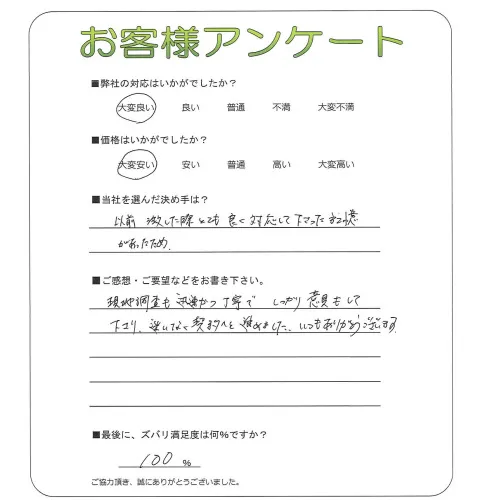 お客様アンケート
■弊社の対応はいかがでしたか？
大変良い 良い 普通 不満 大変不満
■価格はいかがでしたか？
大変安い 安い 普通 高い 大変高い
■当社を選んだ決め手は？
以前 した際とても良く対応して下さった記憶
があったため.
■ご感想・ご要望などをお書き下さい。
現地調査も迅速かつ丁寧で しっかり意見もして
下さり、迷いなく契約へと進めました。いつもありがとうございます
■最後に、ズバリ満足度は何%ですか？
100 %
ご協力頂き、誠にありがとうございました。